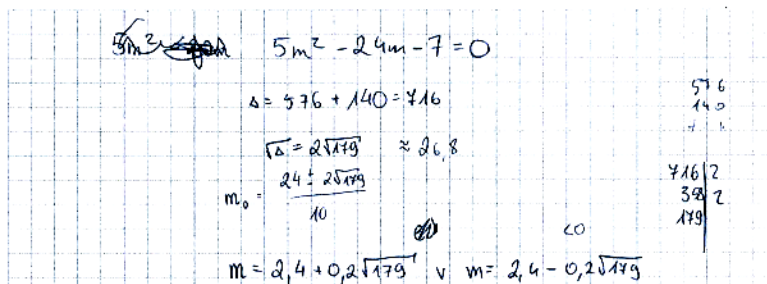 5m² 5m² - 24m - 7 = 0
Δ = 576 + 140 = 716
576
140
√Δ = 2√179 ≈ 26,8
716 | 2
358 | 2
179
m₀ = (24 ± 2√179) / 10
<0
m = 2,4 + 0,2√179 v m = 2,4 - 0,2√179